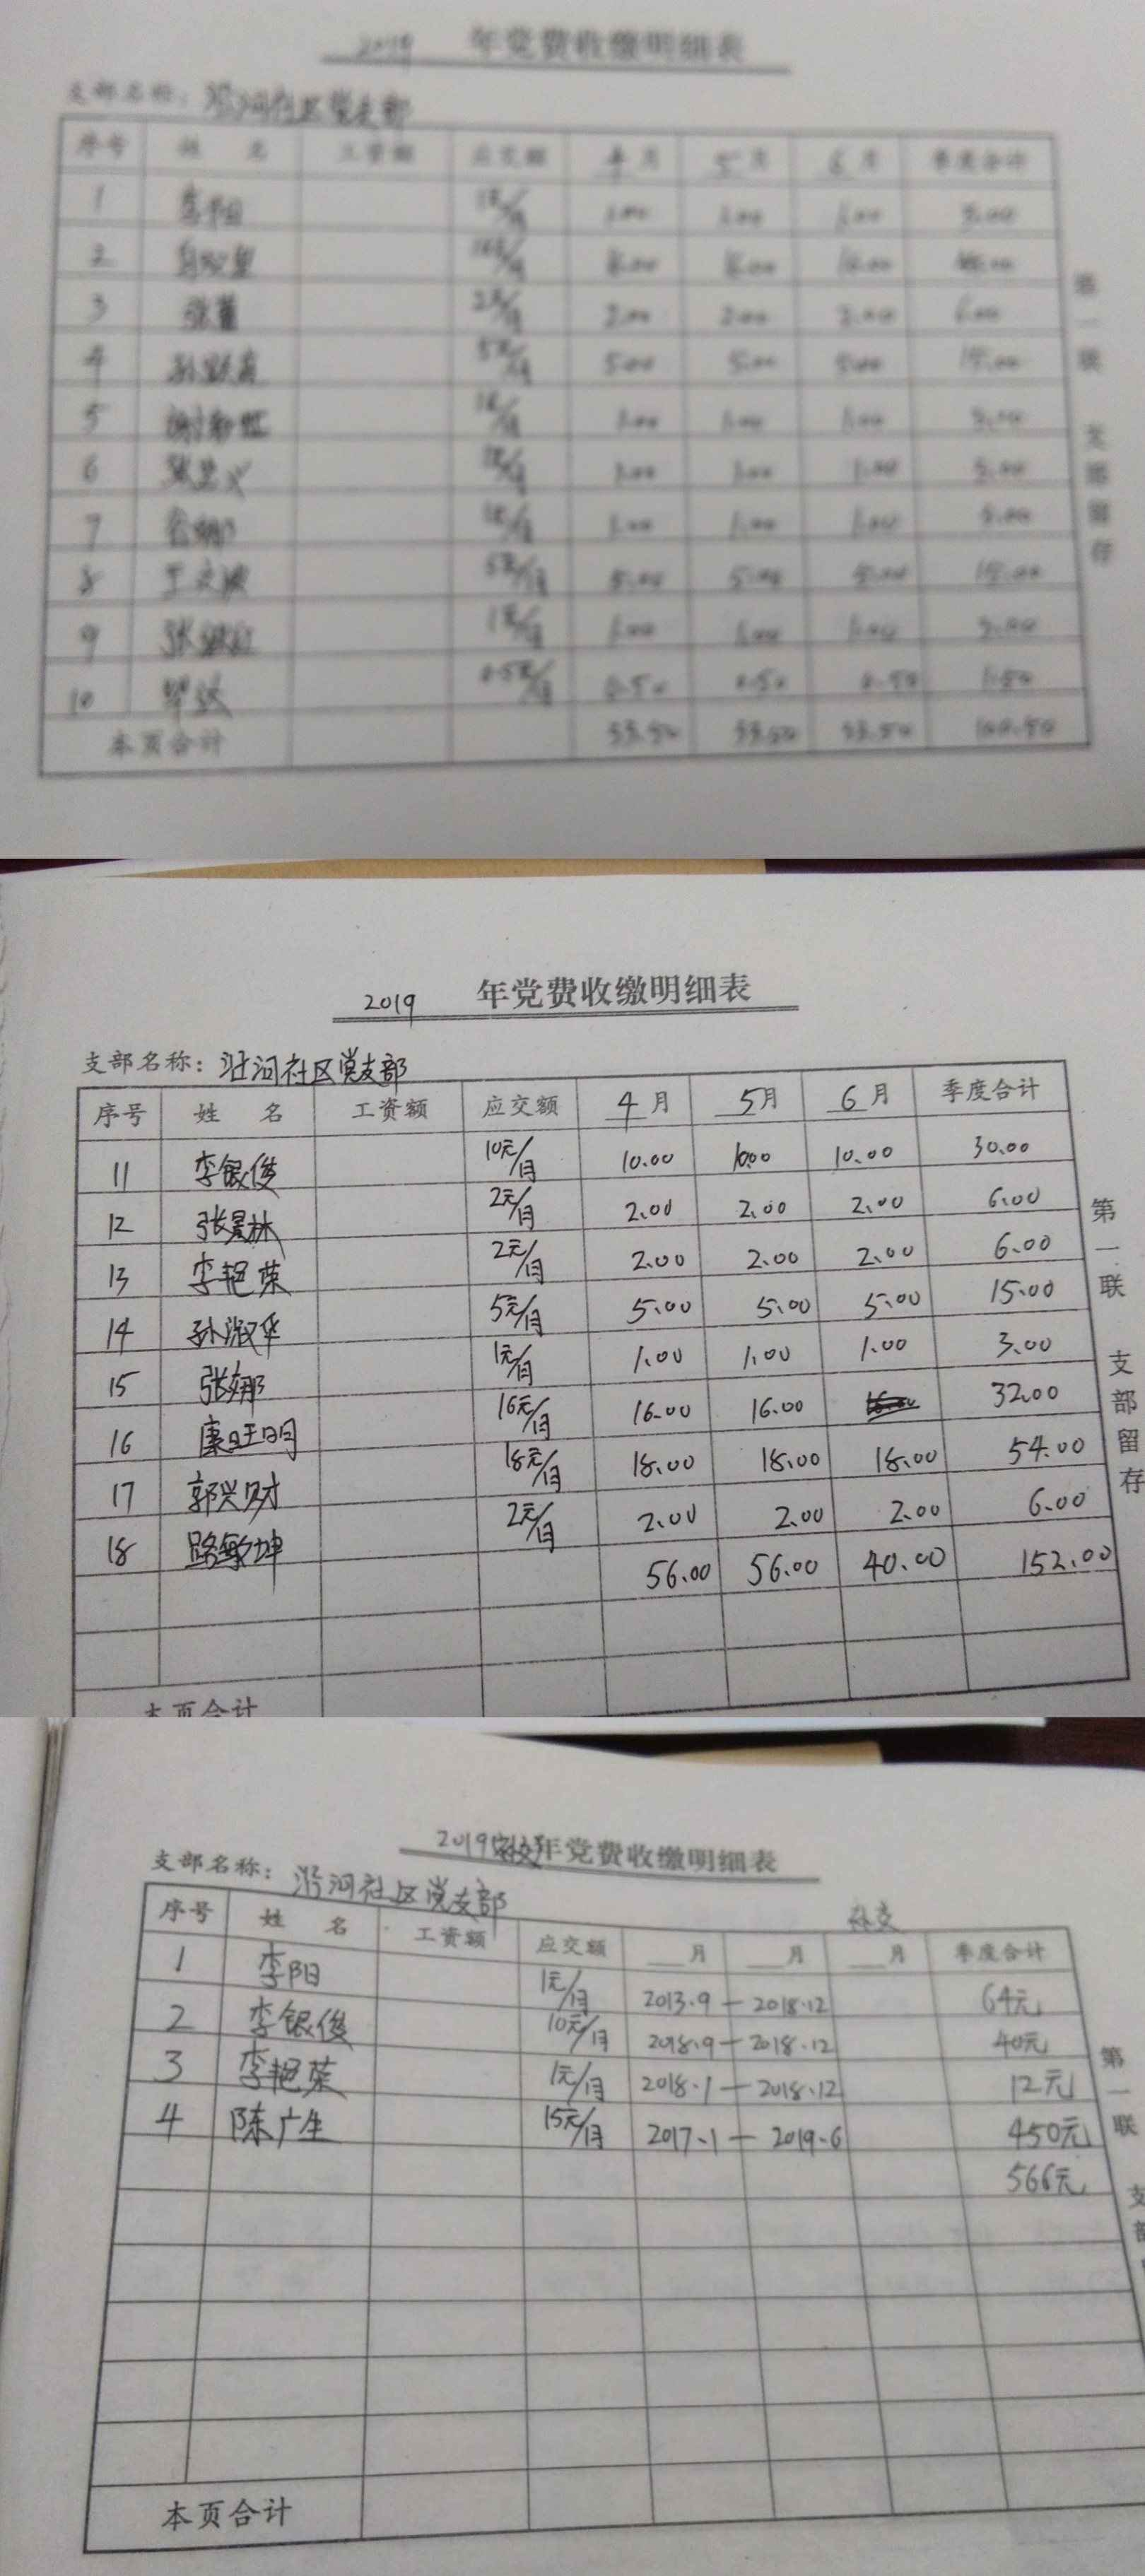 2019 年党费收缴明细表
支部名称：沿河社区党支部
序号 姓名 工资额 应交额 4月 5月 6月 季度合计
1 李阳 1元/月 1.00 1.00 1.00 3.00
2
3 张董 2元/月 2.00 2.00 2.00 6.00
4 5元/月 5.00 5.00 5.00 15.00
5 1元/月 1.00 1.00 1.00 3.00
6 1元/月 1.00 1.00 1.00 3.00
7 1元/月 1.00 1.00 1.00 3.00
8 王文波 5元/月 5.00 5.00 5.00 15.00
9 1元/月 1.00 1.00 1.00 3.00
10 0.5元/月 0.50 0.50 0.50 1.50
本页合计 33.50 33.50 33.50 100.50
第一联 支部留存
2019 年党费收缴明细表
支部名称：沿河社区党支部
序号 姓名 工资额 应交额 4月 5月 6月 季度合计
11 李银俊 10元/月 10.00 10.00 10.00 30.00
12 张景林 2元/月 2.00 2.00 2.00 6.00
13 李艳荣 2元/月 2.00 2.00 2.00 6.00
14 孙淑华 5元/月 5.00 5.00 5.00 15.00
15 张娜 1元/月 1.00 1.00 1.00 3.00
16 康旺明 16元/月 16.00 16.00 32.00
17 郭兴财 18元/月 18.00 18.00 18.00 54.00
18 路敏坤 2元/月 2.00 2.00 2.00 6.00
56.00 56.00 40.00 152.00
本页合计
第一联 支部留存
2019 年党费收缴明细表
支部名称：沿河社区党支部
补交
序号 姓名 工资额 应交额 月 月 月 季度合计
1 李阳 1元/月 2013.9 — 2018.12 64元
2 李银俊 10元/月 2018.9 — 2018.12 40元
3 李艳荣 1元/月 2018.1 — 2018.12 12元
4 陈广生 15元/月 2017.1 — 2019.6 450元
566元
本页合计
第一联 支部